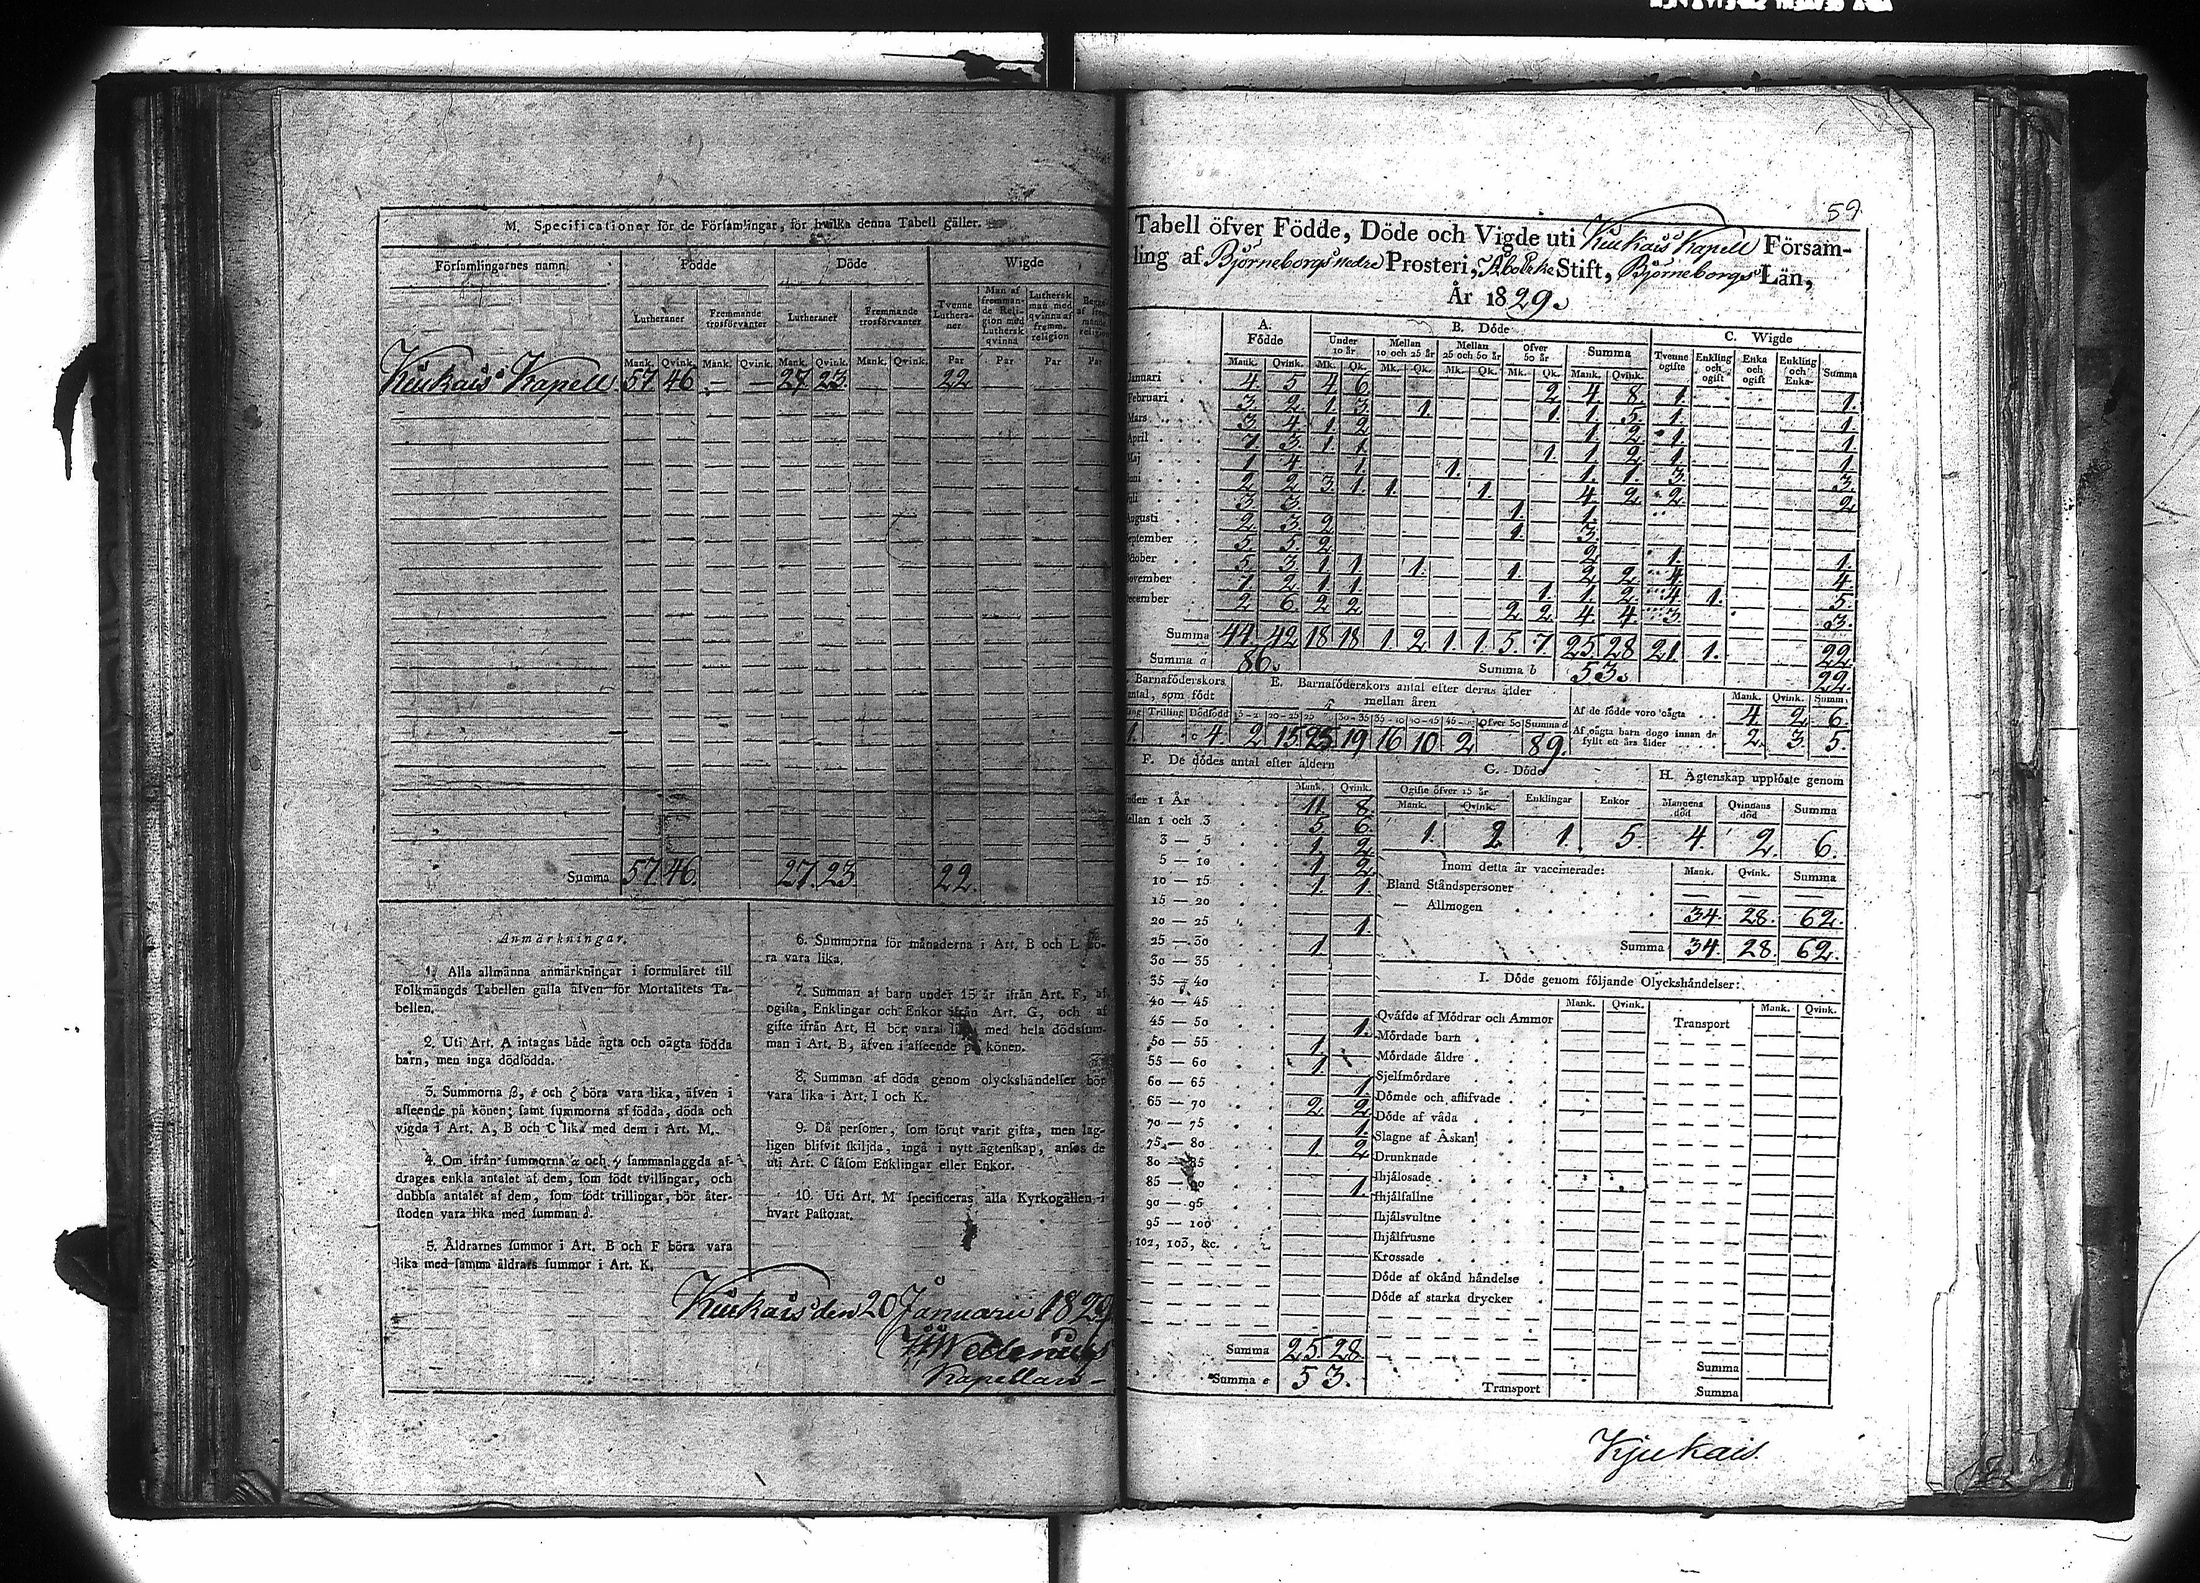 M. Specificationer för de Församlingar, för hvilka denna Tabell gäller.
Församlingarnes namn. Födde Döde Wigde
Lutheraner Fremmande trosförvanter Lutheraner Fremmande trosförvanter Tvenne Lutheraner Man af fremmande Religion med Luthersk qvinna Luthersk man med qvinna af fremm. religion
Mank. Qvink. Mank. Qvink. Mank. Qvink. Mank. Qvink. Par Par Par Par
Kiukais Kapell 57. 46. — — 27. 23. — — 22. — — —
Summa 57. 46. 27. 23. 22.
Anmärkningar.
1. Alla allmänna anmärkningar i formuläret till
Folkmängds Tabellen gälla äfven för Mortalitets Ta-
bellen.
2. Uti Art. A intagas både ägta och oägta födda
barn, men inga dödfödda.
3. Summorna β, ε och ζ böra vara lika, äfven i
afseende på könen; samt summorna af födda, döda och
vigda i Art. A, B och C lika med dem i Art. M.
4. Om ifrån summorna α och γ sammanlaggda af-
drages enkla antalet af dem, som födt tvillingar, och
dubbla antalet af dem, som födt trillingar, bör åter-
stoden vara lika med summan δ.
5. Åldrarnes summor i Art. B och F böra vara
lika med samma åldrars summor i Art. K.
6. Summorna för månaderna i Art. B och L bö-
ra vara lika.
7. Summan af barn under 15 år ifrån Art. F, af
ogifta, Enklingar och Enkor ifrån Art. G, och af
gifte ifrån Art. H bör vara lika med hela dödssum-
man i Art. B, äfven i afseende på könen.
8. Summan af döda genom olyckshändelser bör
vara lika i Art. I och K.
9. Då personer, som förut varit gifta, men lag-
ligen blifvit skiljda, ingå i nytt ägtenskap, anses de
uti Art. C såsom Enklingar eller Enkor.
10. Uti Art. M specificeras alla Kyrkogällen i
hvart Pastorat.
Kiukais den 20 Januarii 1829
Kapellan
59.
Tabell öfver Födde, Döde och Vigde uti Kiukais Kapell Försam-
ling af Björneborgs Nedre Prosteri, Åbo Ärke Stift, Björneborgs Län,
År 1829.
A. Födde B. Döde C. Wigde
Under 10 år Mellan 10 och 25 år Mellan 25 och 50 år Öfver 50 år Summa Tvenne ogifte Enkling och ogift Enka och ogift Enkling och Enka Summa
Mank. Qvink. Mk. Qk. Mk. Qk. Mk. Qk. Mk. Qk. Mank. Qvink.
Januari 4. 5. 4. 6. 2. 4. 8. 1. 1.
Februari 3. 2. 1. 3. 1. 1. 1. 5. 1. 1.
Mars 3. 4. 1. 2. 1. 2. 1. 1.
April 7. 3. 1. 1. 1. 1. 2. 1. 1.
Maj 1. 4. 1. 1. 1. 1. 3. 3.
Juni 2. 2. 3. 1. 1. 1. 4. 2. 2. 2.
Juli 3. 3. 1. 1.
Augusti 2. 3. 2. 1. 3.
September 5. 5. 2. 2. 1. 1.
October 5. 3. 1. 1. 1. 1. 2. 2. 4. 4.
November 7. 2. 1. 1. 1. 1. 2. 4. 1. 5.
December 2. 6. 2. 2. 2. 2. 4. 4. 3. 3.
Summa 44. 42. 18 18 1. 2. 1. 1. 5. 7. 25. 28 21. 1. 22.
Summa a 86. Summa b 53. 22.
Barnaföderskors antal, som födt E. Barnaföderskors antal efter deras ålder mellan åren Mank. Qvink. Summ.
Tvilling Trilling Dödfödd 15-2 20-25 25 30-35 35-40 40-45 45- Öfver 50 Summa d
1. c 4. 2 15 25 19 16 10 2 89.
Af de födde voro oägta 4. 2. 6.
Af oägta barn dogo innan de
fyllt ett års ålder 2. 3. 5.
F. De dödes antal efter åldern
Mank. Qvink.
Under 1 År 11. 8.
Mellan 1 och 3 5. 6.
3 — 5 1. 2.
5 — 10 1. 2.
10 — 15 1. 1.
15 — 20
20 — 25 1.
25 — 30 1.
30 — 35
35 — 40
40 — 45
45 — 50 1.
50 — 55 1.
55 — 60 1.
60 — 65 1.
65 — 70 2. 2.
70 — 75 1.
75 — 80 1. 2.
80 — 85
85 — 90 1.
90 — 95
95 — 100
102, 103, &c.
Summa 25. 28.
Summa e 53.
G. Döde H. Ägtenskap upplöste genom
Ogifte öfver 15 år Enklingar Enkor Mannens död Qvinnans död Summa
Mank. Qvink.
1. 2. 1. 5. 4. 2. 6.
Inom detta år vaccinerade: Mank. Qvink. Summa
Bland Ståndspersoner — — —
— Allmogen 34. 28. 62.
Summa 34. 28. 62.
I. Döde genom följande Olyckshändelser:
Mank. Qvink. Mank. Qvink.
Qväfde af Mödrar och Ammor Transport
Mördade barn
Mördade äldre
Sjelfmördare
Dömde och aflifvade
Döde af våda
Slagne af Åskan
Drunknade
Ihjälosade
Ihjälfallne
Ihjälsvultne
Ihjälfrusne
Krossade
Döde af okänd händelse
Döde af starka drycker
Summa
Transport Summa
Kjukais.